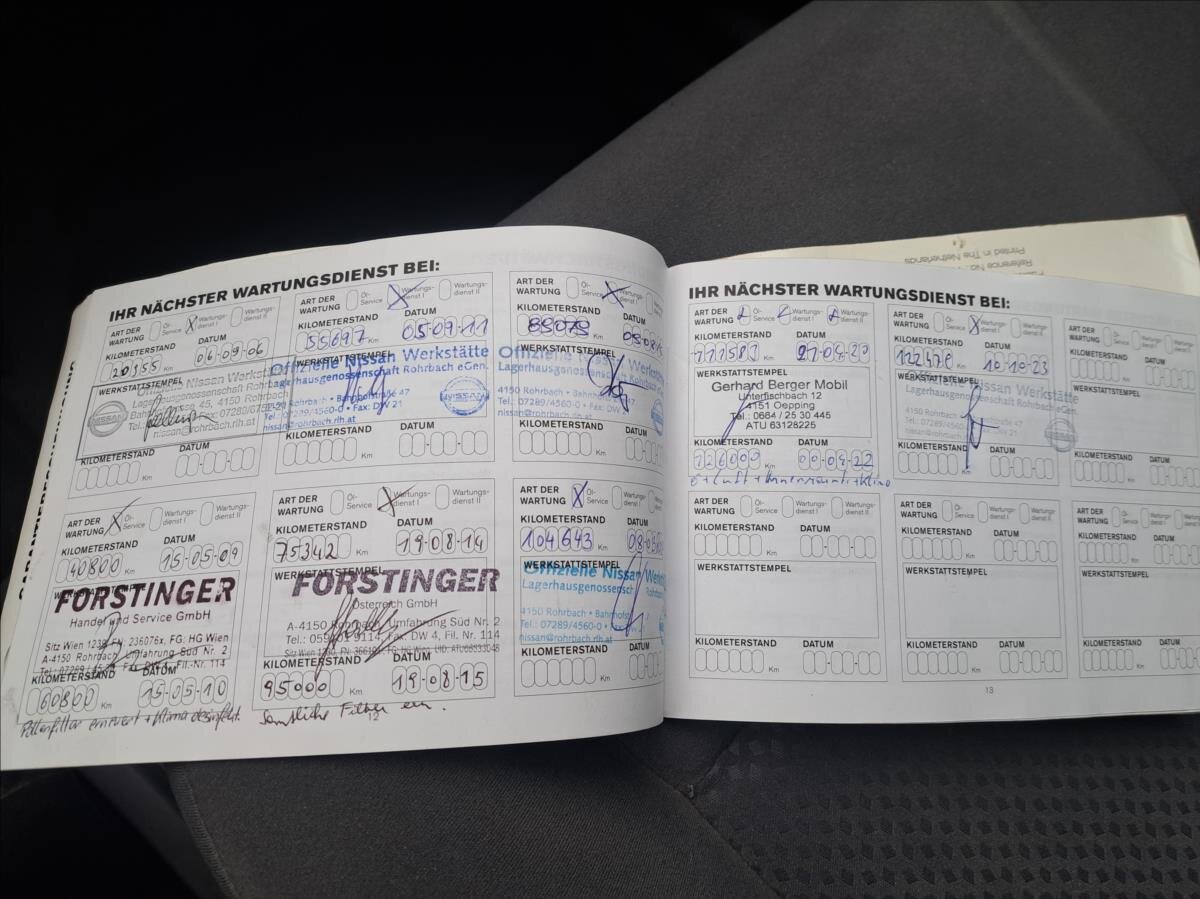 IHR NÄCHSTER WARTUNGSDIENST BEI:
ART DER WARTUNG Öl-Service X Wartungsdienst I Wartungsdienst II
KILOMETERSTAND DATUM
20355 Km 06-09-06
WERKSTATTSTEMPEL
Offizielle Nissan Werkstätte
Lagerhausgenossenschaft Rohrbach
Bahnhofstraße 45, 4150 Rohrbach
nissan@rohrbach.rlh.at
NISSAN
KILOMETERSTAND DATUM
Km
ART DER WARTUNG Öl-Service X Wartungsdienst I Wartungsdienst II
KILOMETERSTAND DATUM
55697 Km 05-09-11
WERKSTATTSTEMPEL
Offizielle Nissan Werkstätte
Lagerhausgenossenschaft Rohrbach eGen.
4150 Rohrbach • Bahnhofstraße 47
Tel.: 07289/4560-0 • Fax: DW 21
nissan@rohrbach.rlh.at
NISSAN
KILOMETERSTAND DATUM
Km
ART DER WARTUNG Öl-Service X Wartungsdienst I
KILOMETERSTAND DATUM
85079 Km
WERKSTATTSTEMPEL
Offizielle Nissan Werkstätte
Lagerhausgenossenschaft Rohrbach eGen.
4150 Rohrbach • Bahnhofstraße 47
Tel.: 07289/4560-0 • Fax: DW
nissan@rohrbach.rlh.at
KILOMETERSTAND DATUM
Km
ART DER WARTUNG X Öl-Service Wartungsdienst I Wartungsdienst II
KILOMETERSTAND DATUM
40800 Km 15-05-09
FORSTINGER
Handel und Service GmbH
Sitz Wien 1230, FN: 236076x, FG: HG Wien
A-4150 Rohrbach, Umfahrung Süd Nr. 2
KILOMETERSTAND DATUM
60800 Km 15-05-10
Pollenfilter erneuert + Klima desinfekt.
ART DER WARTUNG Öl-Service X Wartungsdienst I Wartungsdienst II
KILOMETERSTAND DATUM
75342 Km 19-08-14
WERKSTATTSTEMPEL
FORSTINGER
Österreich GmbH
A-4150 Rohrbach, Umfahrung Süd Nr. 2
Fax: DW 4, Fil. Nr. 114
KILOMETERSTAND DATUM
95000 Km 19-08-15
Sämtliche Filter ern.
12
ART DER WARTUNG X Öl-Service Wartungsdienst I
KILOMETERSTAND DATUM
104643 Km
WERKSTATTSTEMPEL
Offizielle Nissan
Lagerhausgenossensch Rohrbach
4150 Rohrbach • Bahnhofst
Tel.: 07289/4560-0 •
nissan@rohrbach.rlh.at
KILOMETERSTAND DATUM
Km
IHR NÄCHSTER WARTUNGSDIENST BEI:
ART DER WARTUNG Öl-Service Wartungsdienst I Wartungsdienst II
KILOMETERSTAND DATUM
111583 Km
WERKSTATTSTEMPEL
Gerhard Berger Mobil
Unterfischbach 12
4151 Oepping
Tel.: 0664 / 25 30 445
ATU 63128225
KILOMETERSTAND DATUM
126000 Km
ART DER WARTUNG Öl-Service X Wartungsdienst I Wartungsdienst II
KILOMETERSTAND DATUM
Km 10-10-23
WERKSTATTSTEMPEL
Offizielle Nissan Werkstätte
Lagerhausgenossenschaft Rohrbach eGen.
4150 Rohrbach
KILOMETERSTAND DATUM
Km
ART DER WARTUNG Öl-Service Wartungsdienst I
KILOMETERSTAND DATUM
Km
WERKSTATTSTEMPEL
KILOMETERSTAND DATUM
Km
ART DER WARTUNG Öl-Service Wartungsdienst I Wartungsdienst II
KILOMETERSTAND DATUM
Km
WERKSTATTSTEMPEL
KILOMETERSTAND DATUM
Km
ART DER WARTUNG Öl-Service Wartungsdienst I Wartungsdienst II
KILOMETERSTAND DATUM
Km
WERKSTATTSTEMPEL
KILOMETERSTAND DATUM
Km
ART DER WARTUNG Öl-Service Wartungsdienst I
KILOMETERSTAND DATUM
Km
WERKSTATTSTEMPEL
KILOMETERSTAND DATUM
Km
13
Printed in The Netherlands
Reference No.